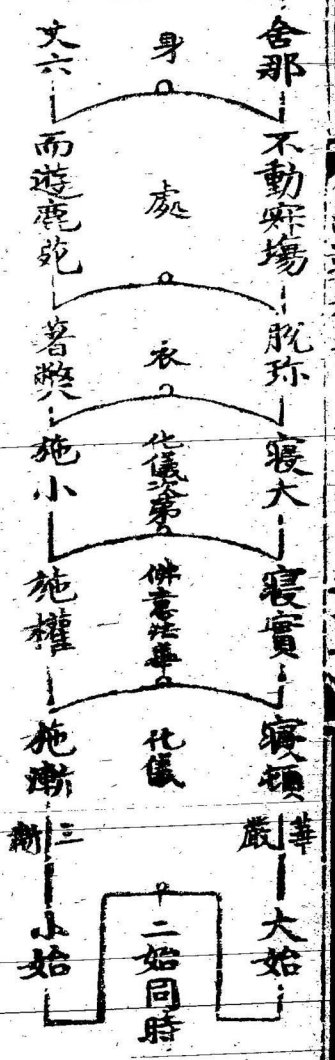 舍那 不動寂場 脫珎 寢大 寢實 寢頓 華嚴 大始
身 處 衣 化儀次第 佛意法華 化儀 二始同時
丈六 而遊鹿苑 著弊 施小 施權 施漸 三漸 小始